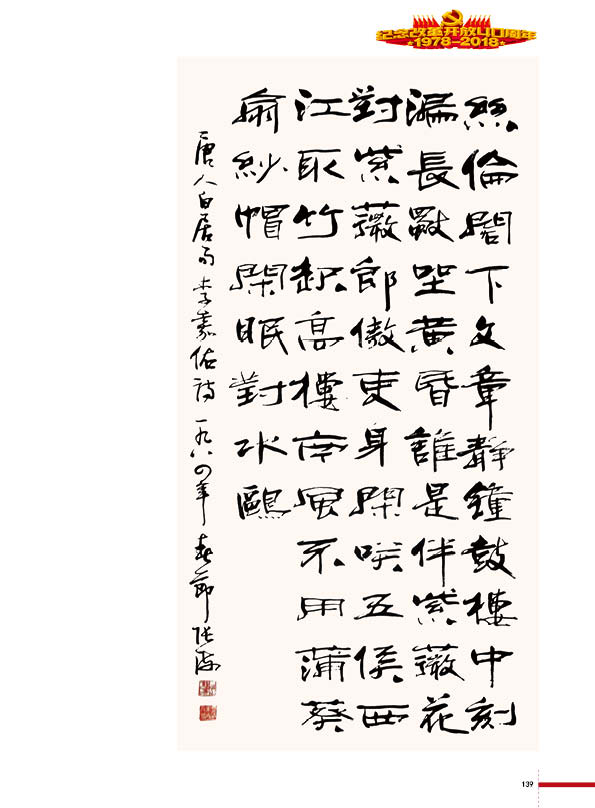 纪念改革开放40周年
★1978-2018★
絲綸閣下文章靜鐘鼓樓中刻
漏長獨坐黃昏誰是伴紫薇花
對紫薇郎傲吏身閑咲五侯西
江取竹起高樓南風不用蒲葵
扇紗帽閑眠對水鷗
唐人白居易李嘉佑詩一九八四年春節張海
139